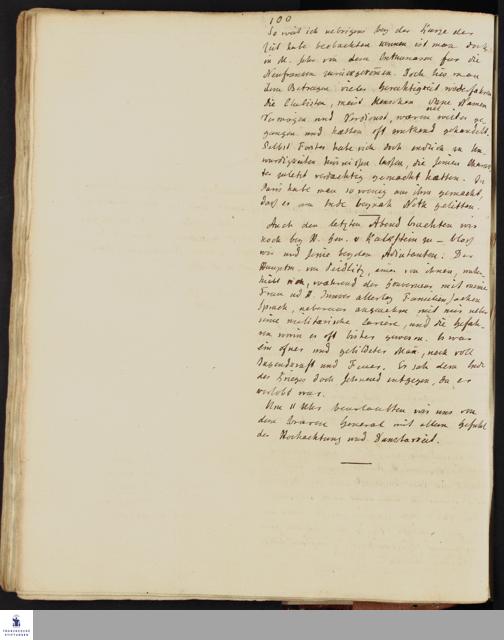 100
So viel ich uebrigens bey der Kürze der
Zeit habe beobachten können ist man doch
in M. sehr von dem Enthusiasm für die
Neufranken zurückgekommen. Doch lies man
dem Betragen vieler Gerechtigkeit wiederfahren
die Clubisten, meist Menschen ohne Namen
Vermögen und Verdienst, wären weiter ge
gangen und hätten oft wüthend gehandelt.
Selbst Forster habe sich doch endlich zu Un
würdigkeiten hinreissen lassen, die seinen
ter zuletzt verdächtig gemacht hätten. In
Paris habe man so wenig aus ihm gemacht,
daß er am Ende beynah Noth gelitten.
Auch den letzten Abend brachten wir
noch bey H. Gen. v Kalkstein zu – blos
wir und seine beyden Adjutanten. Der
Hauptm. von Seidlitz, einer von ihnen, unter
hielt mich, während der Gouverneur mit meine
Frau und allerley Familien Sachen
sprach, ueberaus angenehm mit mir ueber
seine militärische Carriere, und die Gefah
ren worin er oft bisher gewesen. Er war
ein ofner und gebildeter Man, noch voll
Jugendkraft und Feuer. Er sah dem Ende
des Krieges doch sehnend entgegen, da er
verlobt war.
Um 11 Uhr beurlaubten wir uns von
dem braven General mit allem Gefühl
der Hochachtung und Dankbarkeit.
FRANCKESCHE
STIFTUNGEN